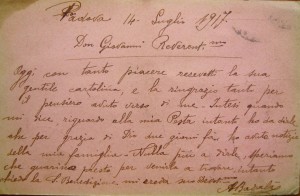 Padova 14 Luglio 1917.
Don Giovanni Reverent.mo
Oggi con tanto piacere recevetti la sua
gentile cartolina, e la ringrazio tanto per
pensiero avuto verso di me. Intesi quando
mi dice, riguardo alla mia Posta intanto ho da dirle
che per grazia di Dio due giorni fà, ho avuto notizia
della mia famiglia. Nulla più a dirle, speriamo
che guarirà presto per venirla a trovare, intanto
chiedo la S. Benedizione, mi creda suo